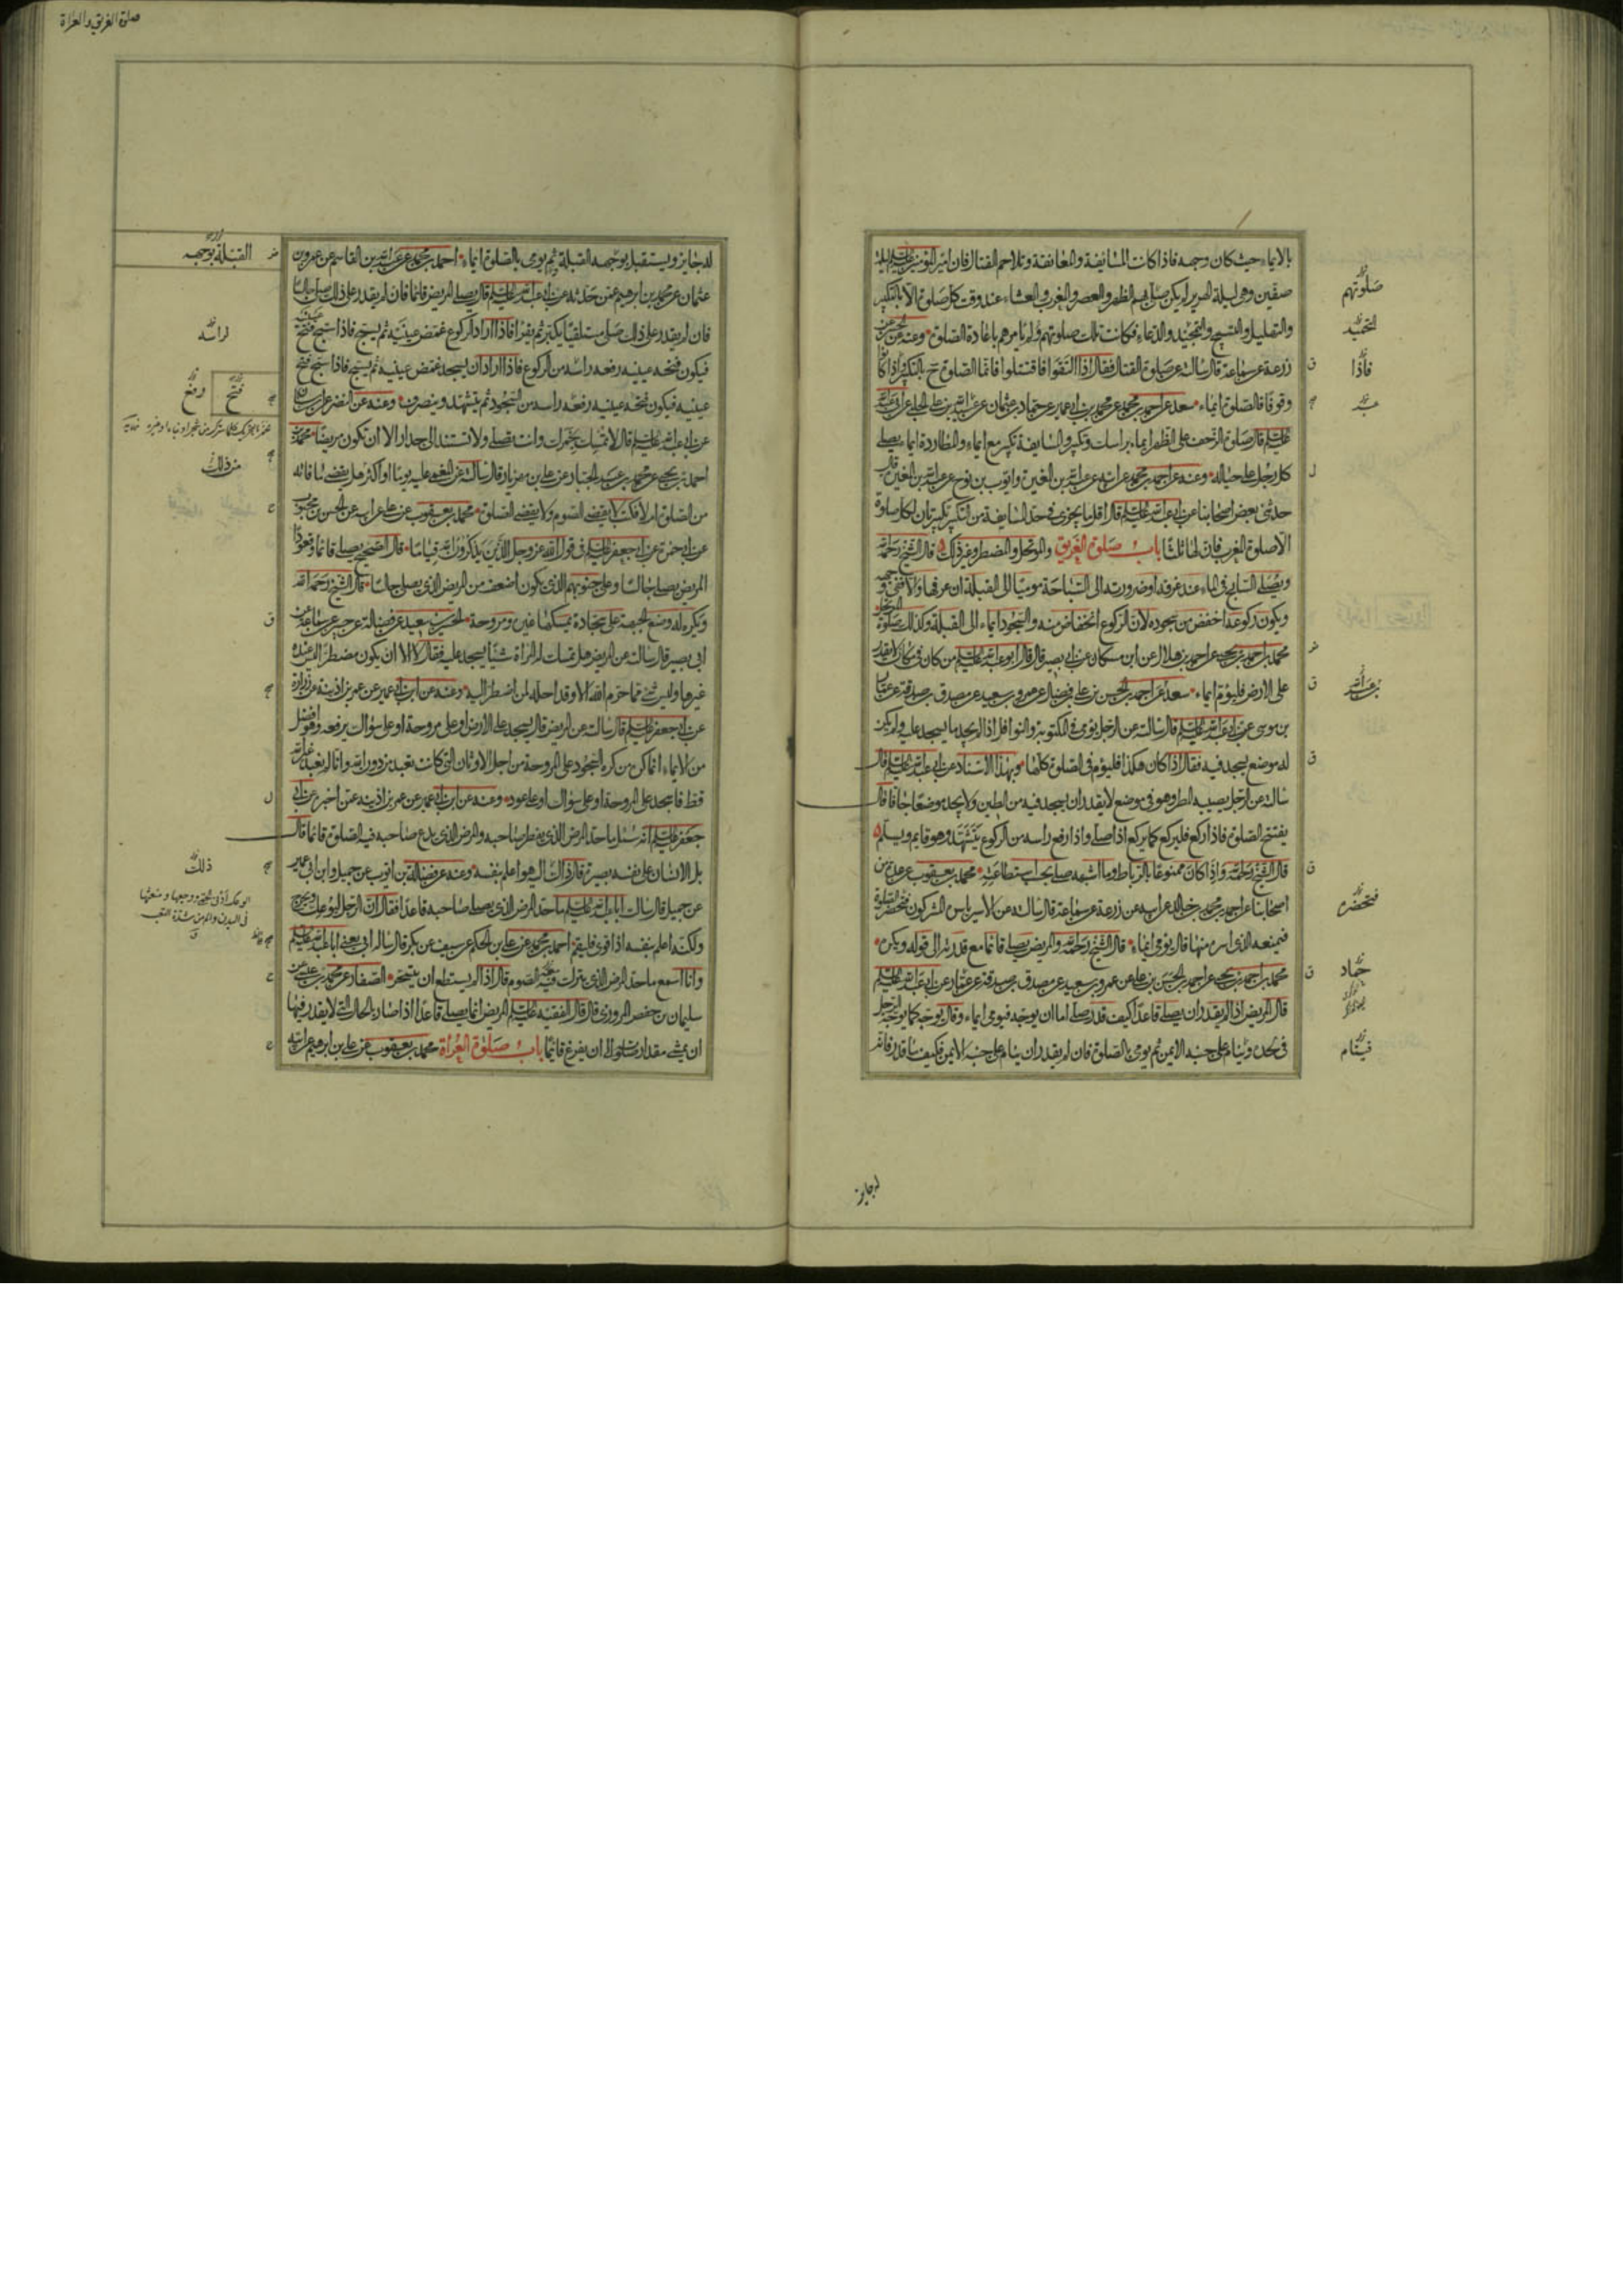 بالايماء حيث كان وجهه فاذا كانت المسايفة والمعانقة وتلاحم القتال فان امير المؤمنين عليه السلام ليلة
صفين وهي ليلة الهرير لم يكن صلى بهم الظهر والعصر والمغرب والعشاء عند وقت كل صلوة الا بالتكبير
والتهليل والتسبيح والتمجيد والدعاء فكانت تلك صلوتهم ولم يامرهم باعادة الصلوة وعنه عن
زرعة عن سماعة قال سالته عن صلوة القتال فقال اذا التقوا فاقتتلوا فانما الصلوة ح بالتكبير واذا كانوا
وقوفا فالصلوة ايماء سعد عن احمد بن محمد عن محمد بن ابي عمير عن حماد بن عثمان عن عبيد الله بن علي الحلبي عن ابي عبد الله
عليه السلام قال صلوة الزحف على الظهر ايماء براسك وتكبير والمسايفة تكبير مع ايماء والمطاردة ايماء يصلي
كل رجل على حياله وعنه عن احمد بن محمد عن ابيه عن عبد الله بن المغيرة وايوب بن نوح عن عبد الله بن المغيرة قال
حدثني بعض اصحابنا عن ابي عبد الله عليه السلام قال اقل ما يجزي في حد المسايفة من التكبير تكبيرتان لكل صلوة
الا صلوة المغرب فان لها ثلثا باب صلوة الغريق والموتحل والمضطر وغير ذلك قال الشيخ رحمه الله
ويصلي السابح في الماء عند غرقه او ضرورته الى السباحة موميا الى القبلة ان عرفها والا ففي وجهه
ويكون ركوعه اخفض من سجوده لان الركوع انخفاض منه والسجود ايماء الى القبلة وكذلك صلوة الموتحل
محمد بن احمد بن يحيى عن احمد بن هلال عن ابن مسكان عن ابي بصير قال قال ابو عبد الله عليه السلام من كان في مكان لا يقدر
على الارض فليؤم ايماء سعد عن احمد عن الحسن بن علي بن فضال عن عمرو بن سعيد عن مصدق بن صدقة عن عمار
بن موسى عن ابي عبد الله عليه السلام قال سالته عن الرجل يؤمي في المكتوبة والنوافل اذا لم يجد ما يسجد عليه ولم يكن
له موضع يسجد فيه فقال اذا كان هكذا فليؤم في الصلوة كلها وبهذا الاسناد عن ابي عبد الله عليه السلام قال
سالته عن الرجل يصيبه المطر وهو في موضع لا يقدر ان يسجد فيه من الطين ولا يجد موضعا جافا قال
يفتتح الصلوة فاذا ركع فليركع كما يركع اذا صلى واذا رفع راسه من الركوع يتشهد وهو قايم ويسلم
قال الشيخ رحمه الله واذا كان ممنوعا بالرباط وما اشبهه صلى بحسب استطاعته محمد بن يعقوب عن عدة من
اصحابنا عن احمد بن محمد بن خالد عن ابيه عن زرعة عن سماعة قال سالته عن الاسير ياسره المشركون فتحضر الصلوة
فيمنعه الذي اسره منها قال يؤمي ايماء قال الشيخ رحمه الله والمريض يصلي قائما مع قدرته الى قوله ويكره
محمد بن احمد بن يحيى عن احمد بن الحسن بن علي عن عمرو بن سعيد عن مصدق بن صدقة عن عمار عن ابي عبد الله عليه السلام
قال المريض اذا لم يقدر ان يصلي قاعدا كيف قدر صلى اما ان يوجه فيومي ايماء وقال يوجه كما يوجه الرجل
في لحده وينام على جنبه الايمن ثم يومي بالصلوة فان لم يقدر ان ينام على جنبه الايمن فكيف ما قدر فانه
صلوتهم
التحميد
فاذا
عبد
بن عبد الله
فتحضره
حماد
فينام
له جايز
صلوة الغريق والعراة
له جايز ويستقبل بوجهه القبلة ثم يومي بالصلوة ايماء احمد بن محمد عن عبد الله بن القاسم عن عمرو بن
عثمان عن محمد بن ابرهيم عمن حدثه عن ابي عبد الله عليه السلام قال يصلي المريض قائما فان لم يقدر على ذلك صلى جالسا
فان لم يقدر على ذلك صلى مستلقيا يكبر ثم يقرا فاذا اراد الركوع غمض عينيه ثم يسبح فاذا سبح فتح عينيه
فيكون فتحه عينيه رفعه راسه من الركوع فاذا اراد ان يسجد غمض عينيه ثم يسبح فاذا سبح فتح
عينيه فيكون فتحه عينيه رفعه راسه من السجود ثم يتشهد وينصرف وعنه عن النضر عن ابن سنان
عن ابي عبد الله عليه السلام قال لا تمسك بخمرك وانت تصلي ولا تستند الى جدار الا ان تكون مريضا محمد بن
احمد بن يحيى عن محمد بن عبد الجبار عن علي بن مهزيار قال سالته عن المغمى عليه يوما او اكثر هل يقضي ما فاته
من الصلوة ام لا فكتب لا يقضي الصوم ولا يقضي الصلوة محمد بن يعقوب عن علي عن ابيه عن الحسن بن محبوب
عن ابي حمزة عن ابي جعفر عليه السلام في قول الله عز وجل الذين يذكرون الله قياما قال الصحيح يصلي قائما وقعودا
المريض يصلي جالسا وعلى جنوبهم الذي يكون اضعف من المريض الذي يصلي جالسا قال الشيخ رحمه الله
ويكره له وضع الجبهة على سجادة يمسكها غيره ومروحة الحسين بن سعيد عن فضالة عن حسين عن سماعة عن
ابي بصير قال سالته عن المريض هل تمسك له المراة شيئا يسجد عليه فقال لا الا ان يكون مضطرا ليس عنده
غيرها وليس شيء مما حرم الله الا وقد احله لمن اضطر اليه وعنه عن ابن ابي عمير عن عمر بن اذينة عن زرارة
عن ابي جعفر عليه السلام قال سالته عن المريض قال يسجد على الارض او على مروحة او على سواك يرفعه وهو افضل
من الايماء انما كره من كره السجود على المروحة من اجل الاوثان التي كانت تعبد من دون الله وانا لم نعبد غير الله
قط فاسجد على المروحة او على سواك او على عود وعنه عن ابن ابي عمير عن عمر بن اذينة عمن اخبره عن ابي
جعفر عليه السلام انه سئل ما حد المرض الذي يفطر صاحبه والمرض الذي يدع صاحبه فيه الصلوة قائما قال
بل الانسان على نفسه بصيرة قال ذاك اليه هو اعلم بنفسه وعنه عن فضالة بن ايوب عن جميل وابن ابي عمير
عن جميل قال سالت ابا عبد الله عليه السلام ما حد المرض الذي يصلي صاحبه قاعدا فقال ان الرجل ليوعك ويحرج
ولكنه اعلم بنفسه اذا قوي فليقم احمد بن محمد عن علي بن الحكم عن سيف عن بكر قال ساله ابي يعني ابا عبد الله عليه السلام
وانا اسمع ما حد المرض الذي يترك فيه الصوم قال اذا لم يستطع ان يتسحر الصفار عن محمد بن عيسى عن
سليمان بن حفص المروزي قال قال الفقيه عليه السلام المريض انما يصلي قاعدا اذا صار بالحال التي لا يقدر فيها
ان يمشي مقدار صلوته الى ان يفرغ قائما باب صلوة العراة محمد بن يعقوب عن علي بن ابرهيم عن ابيه
القبلة بوجهه
لراسه
فتح
رفع
من ذلك
ذلك